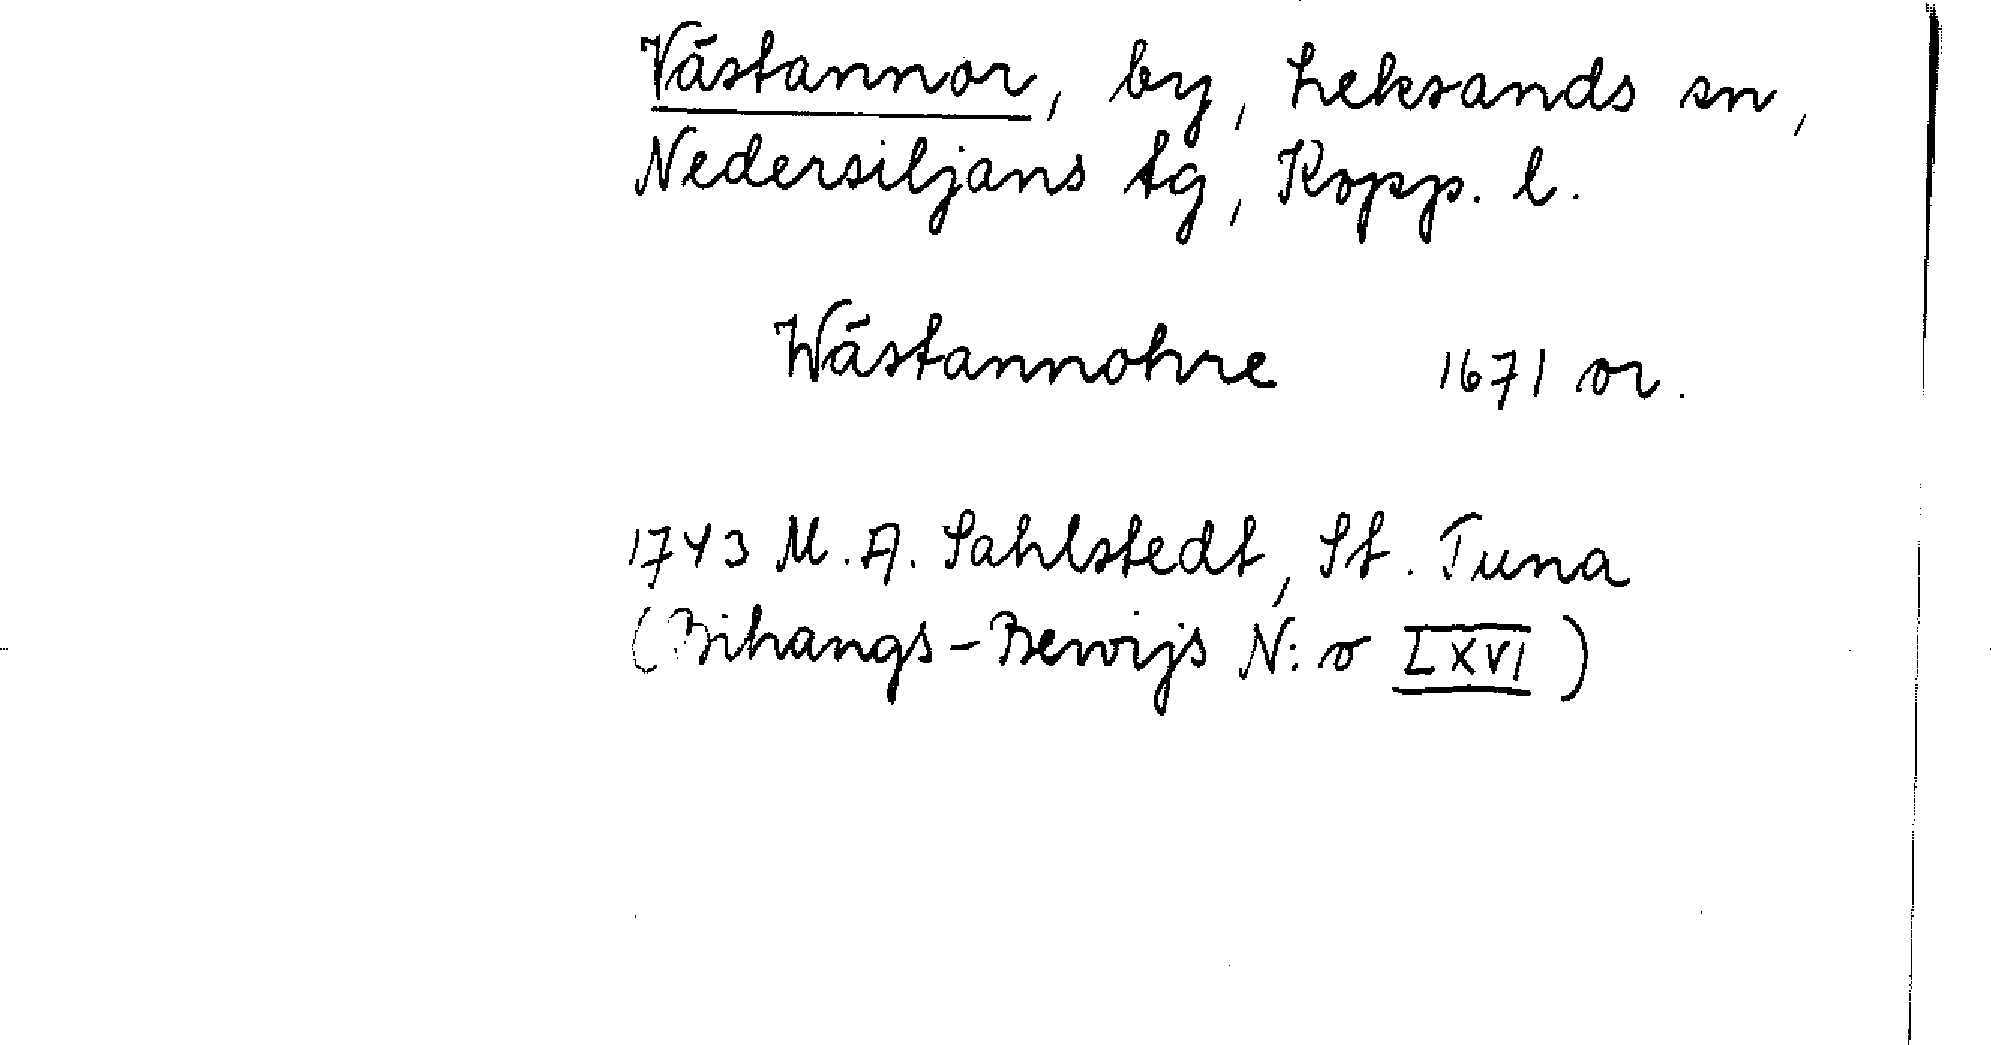 Västannor, by, Leksands sn,
Nedersiljans tg, Kopp. l.
Wästannohre 1671 or.
1743 M. A. Sahlstedt, St. Tuna
(Bihangs-Bewijs N:o LXVI)